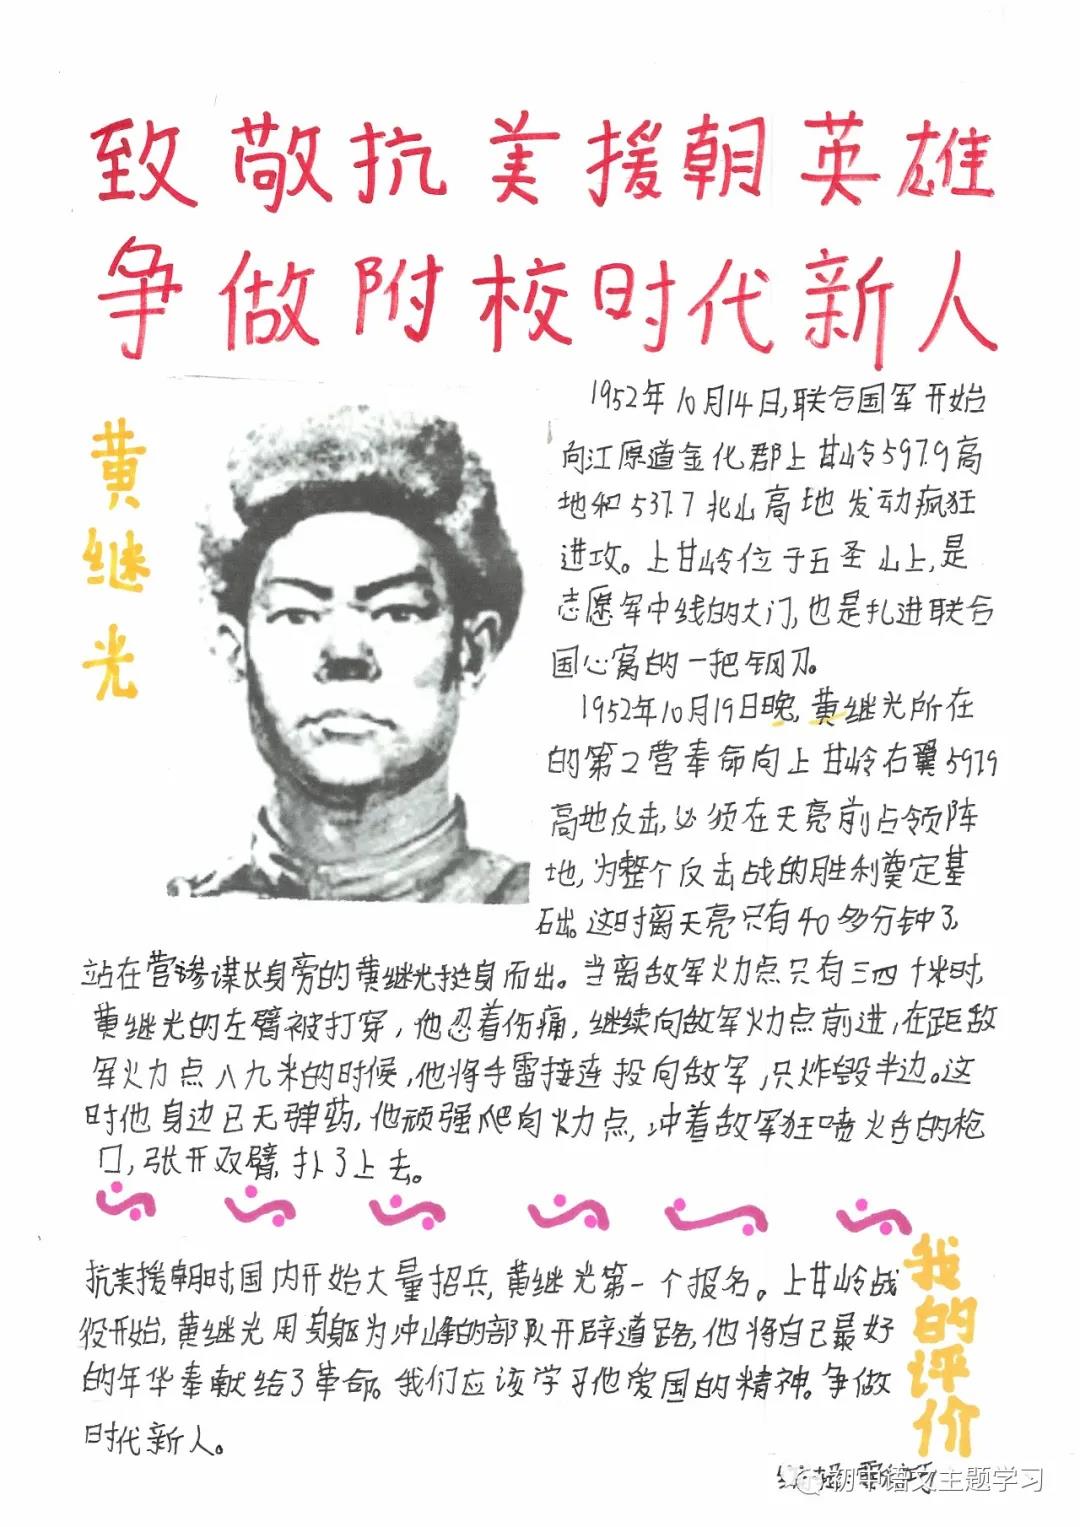 致敬抗美援朝英雄
争做附校时代新人
黄继光
1952年10月14日,联合国军开始
向江原道金化郡上甘岭597.9高
地和537.7北山高地发动疯狂
进攻。上甘岭位于五圣山上,是
志愿军中线的大门,也是扎进联合
国心窝的一把钢刀。
1952年10月19日晚,黄继光所在
的第2营奉命向上甘岭右翼597.9
高地反击,必须在天亮前占领阵
地,为整个反击战的胜利奠定基
础。这时离天亮只有40多分钟了,
站在营参谋长身旁的黄继光挺身而出。当离敌军火力点只有三四十米时,
黄继光的左臂被打穿,他忍着伤痛,继续向敌军火力点前进,在距敌
军火力点八九米的时候,他将手雷接连投向敌军,只炸毁半边。这
时他身边已无弹药,他顽强爬向火力点,冲着敌军狂喷火舌的枪
口,张开双臂,扑了上去。
我的评价
抗美援朝时,国内开始大量招兵,黄继光第一个报名。上甘岭战
役开始,黄继光用身躯为冲峰的部队开辟道路,他将自己最好
的年华奉献给了革命。我们应该学习他爱国的精神。争做
时代新人。
初中语文主题学习